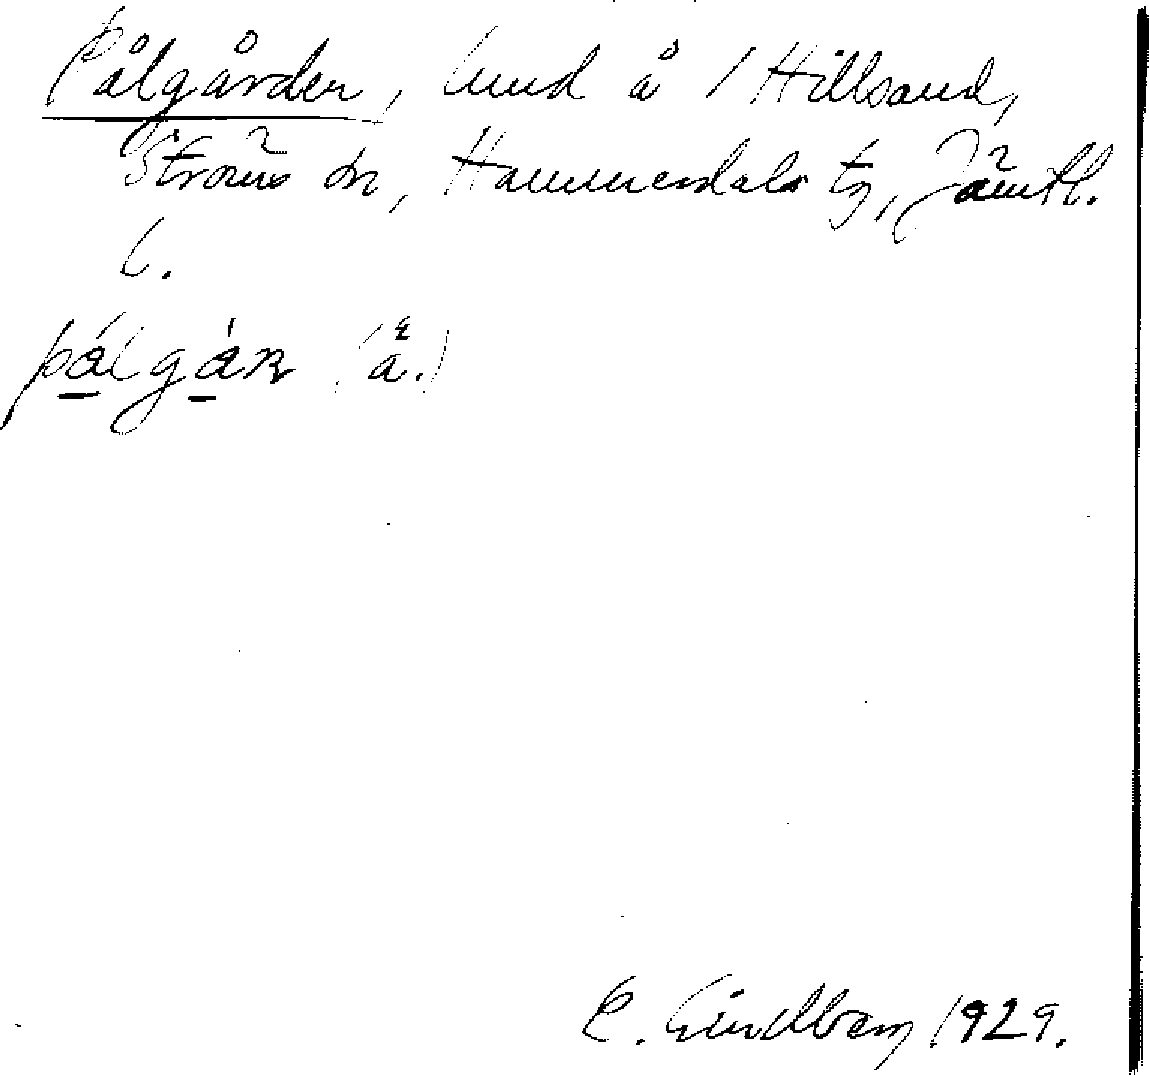 Pålgården, lund å / Hillsand,
Ströms sn, Hammerdals tg, Jämtl.
l.
pålgár̄ (å.)
E. Lindberg 1929.